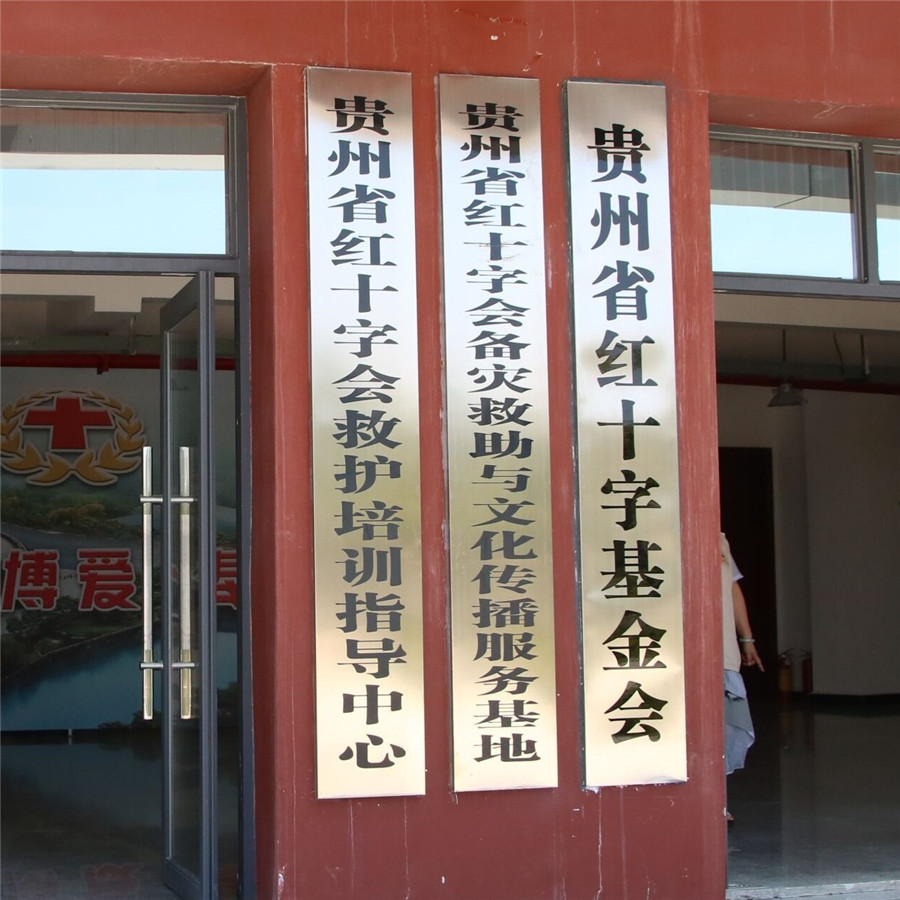 贵州省红十字会救护培训指导中心
贵州省红十字会备灾救助与文化传播服务基地
贵州省红十字基金会
博爱